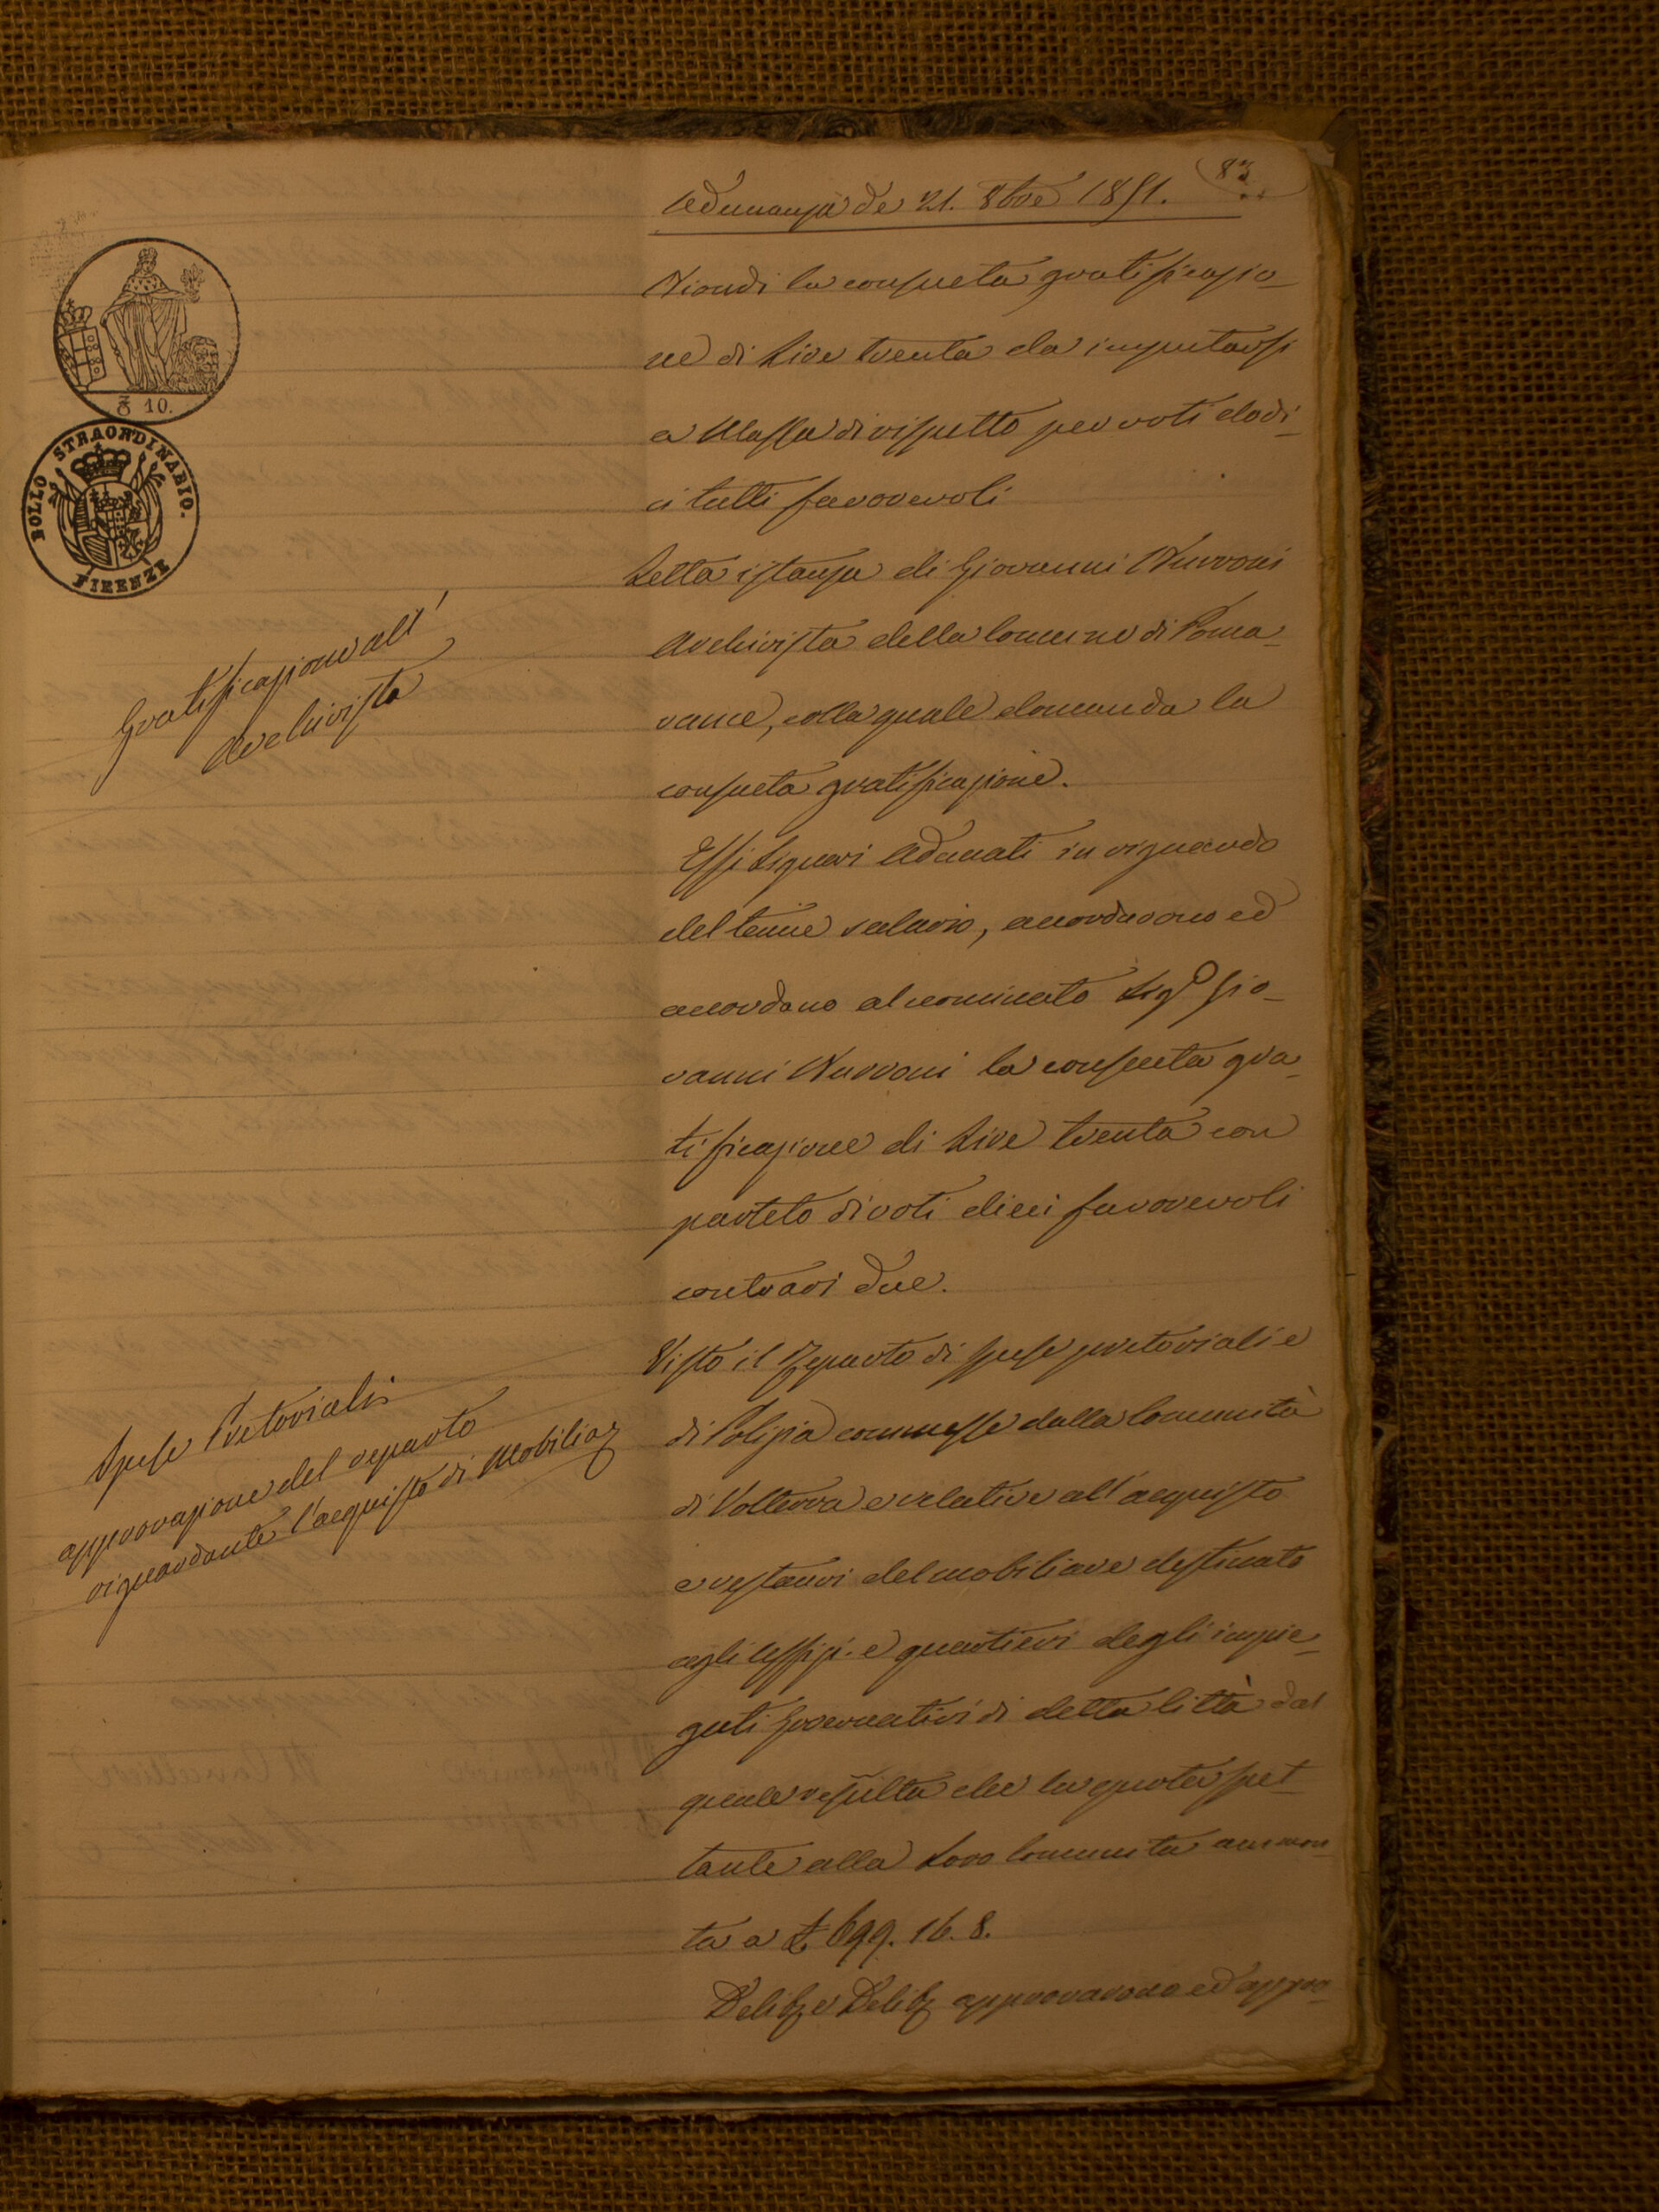 83
Adunanza de 21. 8bre 1851.
Biondi la consueta gratificazio-
ne di Lire trenta da imputarsi
a Massa di rispetto per voti dodi-
ci tutti favorevoli
Letta istanza di Giovanni
Archivista della Comune di Poma-
rance, colla quale domanda la
consueta gratificazione.
Essi Signori Adunati in riguardo
del tenue salario, accordarono ed
accordano al nominato Sigr Gio-
vanni la consueta gra-
tificazione di Lire trenta con
partito di voti dieci favorevoli
contrari due.
Visto il Reparto di spese pretoriali e
di Polizia commesse dalla Comunità
di Volterra e relative all'acquisto
e restauri del mobiliare destinato
agli Uffizi e quartieri degli impie-
gati Governativi di detta Città dal
quale resulta che la quota spet-
tante alla Loro Comunità ammon-
ta a £ 699. 16. 8.
Delib e Delib approvarono ed appro-
10.
BOLLO STRAORDINARIO.
FIRENZE
Gratificazione all'
Archivista
Spese Pretoriali
approvazione del reparto
riguardante l'acquisto di Mobilia